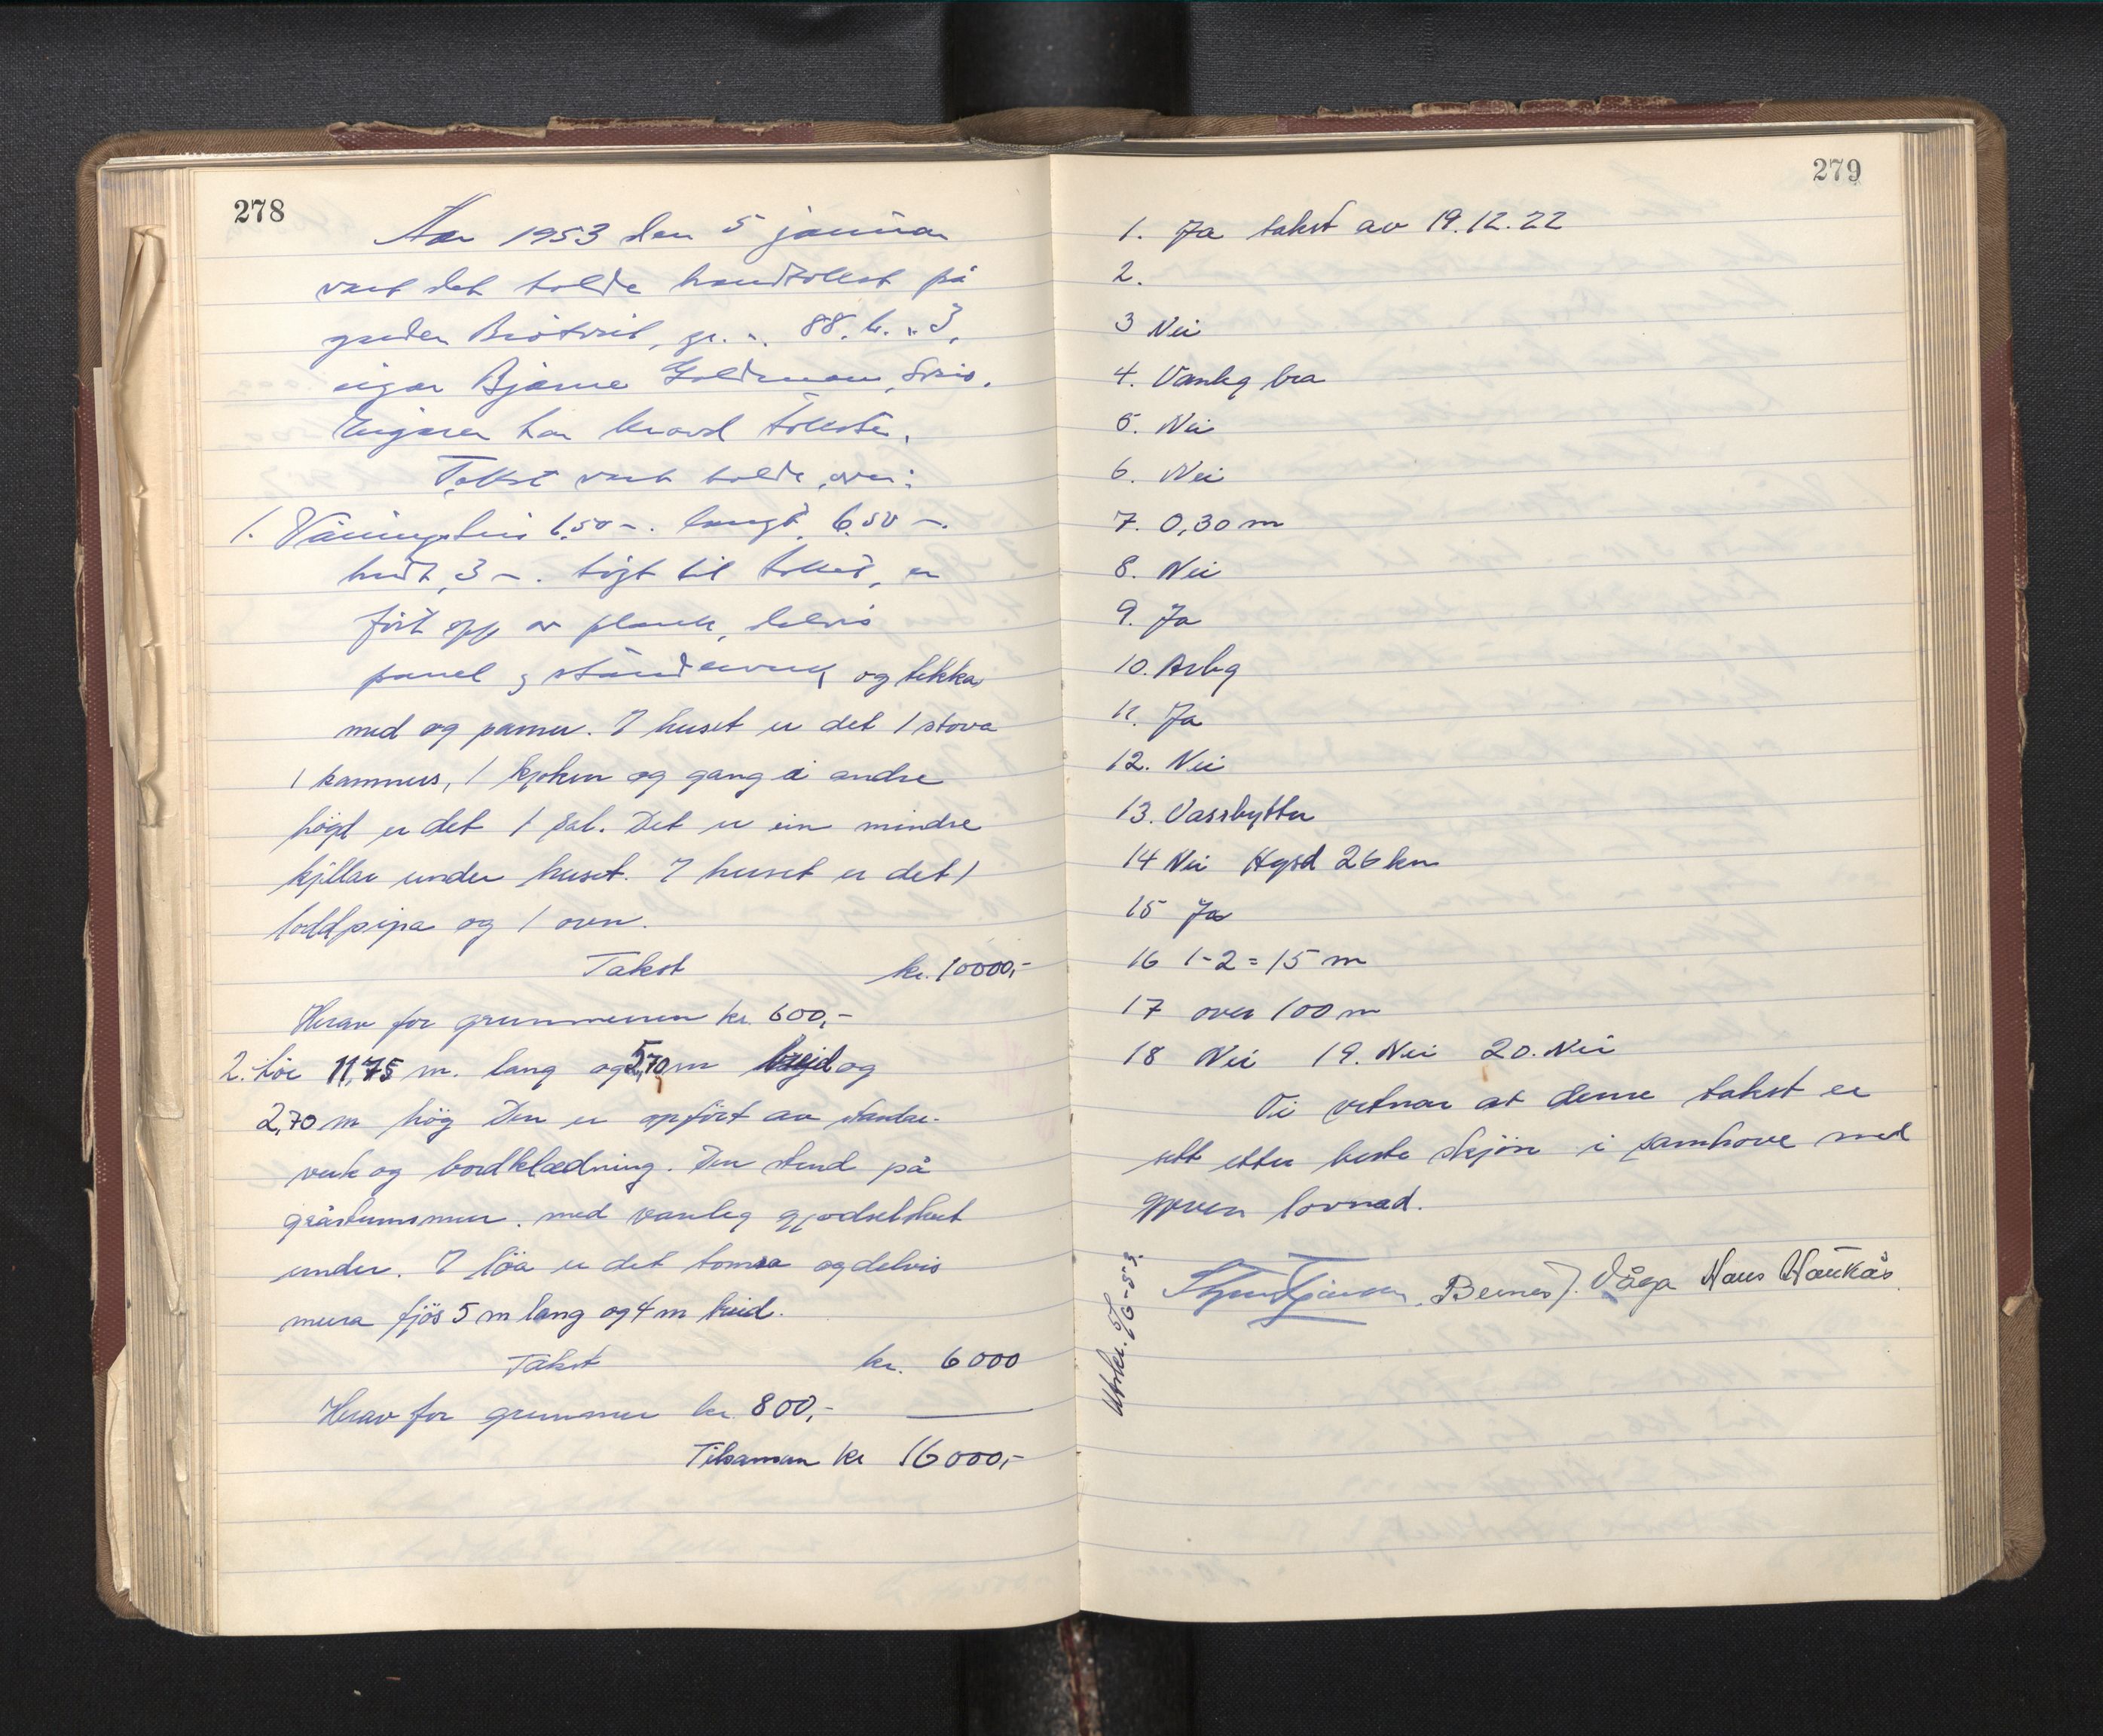 278
Aar 1953 den 5 januar
vart det halde brandtakst på
garden Brötveit, gr. n. 88. b. n 3,
eigar Bjarne Goldman,
Eigaren har kravd taksten.
Takst vart halde over:
1. Våningshus 6,50 m. langt, 6,50 m.
breidt, 3 m. högt til taket, er
fört opp av plank, delvis
panel og standarverk og tekka
med og panner. I huset er det 1 stova
1 kammers, 1 kjøken og gang i andre
högd er det 1 sal. Det er ein mindre
kjellar under huset. I huset er det 1
loddpipa og 1 oven.
Takst kr. 10000,-
Herav for grunnmuren kr. 600,-
2. Löe 11,75 m. lang og 5,70 m breid og
2,70 m hög Den er opfört av stander-
verk og bordklædning. Den stend på
gråsteinsmur. med vanleg gjødselshus
under. I löa er det tomra og delvis
mura fjös 5 m lang og 4 m breid.
Takst kr. 6000
Herav for grunnmur kr. 800,-
Tilsaman kr 16000,-
279
1. Ja takst av 19.12.22
2.
3 Nei
4. Vanleg bra
5. Nei
6. Nei
7. 0,30 m
8. Nei
9. Ja
10. Årleg
11. Ja
12. Nei
13. Vassbytter
14 Nei Hgsd 26 km
15 Ja
16 1-2 = 15 m
17 over 100 m
18 Nei 19. Nei 20. Nei
Vi vitnar at denne takst er
sett etter beste skjön i samhove med
gjeven lovnad.
Berner J. Våga Hans Haukås
Utskr. 5/6-53.